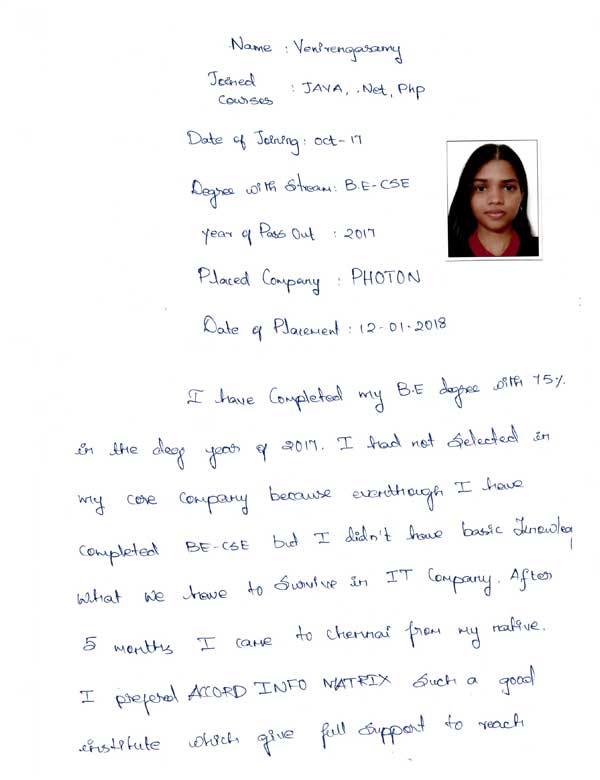 Name : Venirengasamy
Joined
Courses : JAVA, .Net, Php
Date of Joining : Oct-17
Degree with Stream : B.E-CSE
Year of Pass Out : 2017
Placed Company : PHOTON
Date of Placement : 12-01-2018
I have Completed my B.E degree with 75%
in the year of 2017. I had not Selected in
my core Company because eventhough I have
Completed BE-CSE but I didn't have basic
What we have to Survive in IT Company. After
5 months I came to chennai from my native.
I prefered ACORD INFO MATRIX Such a good
institute which give full Support to reach